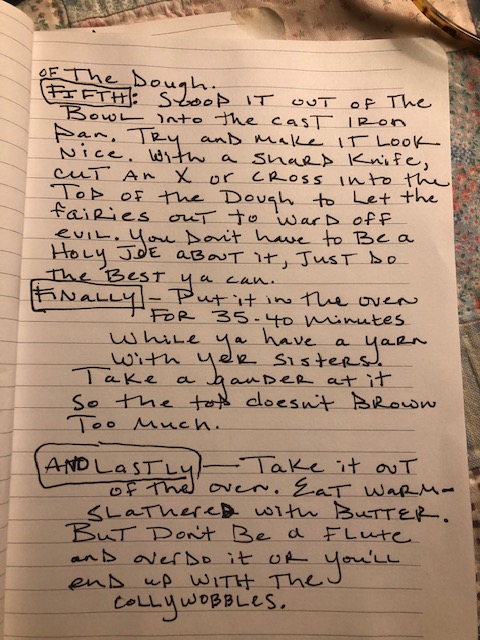 OF The Dough.
FIFTH: SCOOP IT OUT OF The
BOWL into the cast IRON
Pan. Try and make IT LOOK
Nice. With a sharp Knife,
cut An X or cross into the
Top of the Dough to Let the
fairies out to ward off
evil. You Don't have to Be a
Holy Joe about it, Just Do
the Best ya can.
FINALLY - Put it in the oven
FOR 35-40 minutes
While ya have a yarn
With yer sisters.
Take a gander at it
So the top doesn't Brown
Too Much.
AND LASTLY - Take it out
of the oven. Eat warm -
slathered with Butter.
But Don't Be a Flute
and overdo it or you'll
end up with the
collywobbles.